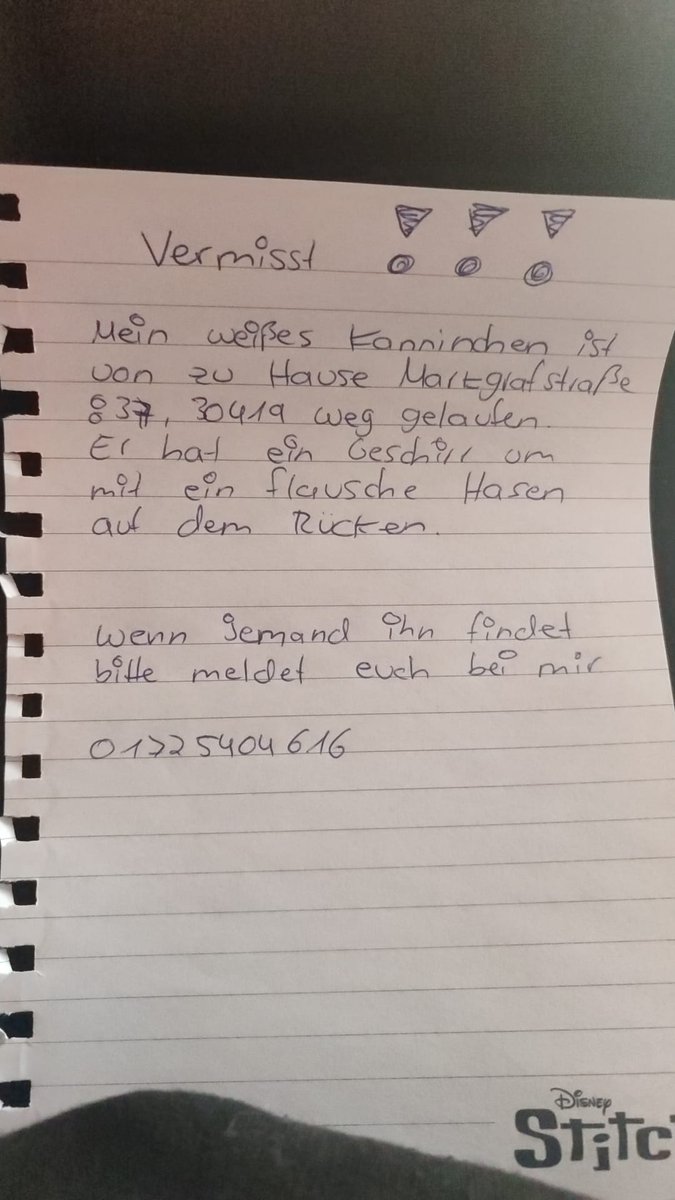 Vermisst !!!
Mein weißes Kanninchen ist
von zu Hause Markgrafstraße
37, 30419 weg gelaufen.
Er hat ein Geschirr um
mit ein flausche Hasen
auf dem Rücken.
wenn jemand ihn findet
bitte meldet euch bei mir
01725404616
DISNEY
Stitc